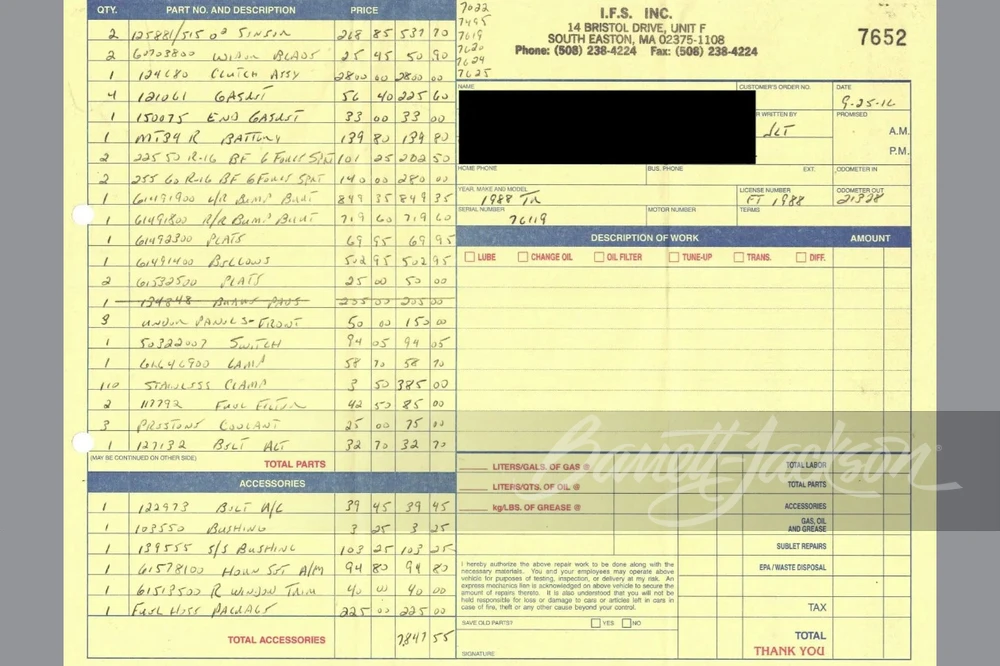 QTY. PART NO. AND DESCRIPTION PRICE
2 125881/515 O2 SINSOR 268 85 537 70
2 60703800 WIPOR BLADS 25 45 50 90
1 124680 CLUTCH ASSY 2800 00 2800 00
4 121061 GASKIT 56 40 225 60
1 150075 END GASKIT 33 00 33 00
1 MT34 R BATTORY 139 80 139 80
2 225 50 R-16 BF G FORCE SPRT 101 25 202 50
2 255 60 R-16 BF G FORCE SPRT 140 00 280 00
1 61491900 L/R BUMP BRKT 849 35 849 35
1 61491800 R/R BUMP BRKT 719 60 719 60
1 61492300 PLATS 69 95 69 95
1 61491400 BELLOWS 502 95 502 95
2 61532500 PLATS 25 00 50 00
1 134848 BRAKE PADS 205 00 205 00
3 UNDOR PANELS-FRONT 50 00 150 00
1 50322007 SWITCH 94 05 94 05
1 61646900 LAMP 58 70 58 70
110 STAINLESS CLAMP 3 50 385 00
2 117792 FUEL FILTOR 42 50 85 00
3 PRESTONE COOLANT 25 00 75 00
1 127132 BELT ALT 32 70 32 70
(MAY BE CONTINUED ON OTHER SIDE)
TOTAL PARTS
ACCESSORIES
1 122973 BELT A/C 39 45 39 45
1 103550 BUSHING 3 25 3 25
1 139555 S/S BUSHING 103 25 103 25
1 61578100 HORN SET A/M 94 80 94 80
1 61513500 R WINDOW TRIM 40 00 40 00
1 FUEL HOSE PACKAGE 225 00 225 00
TOTAL ACCESSORIES 7,847 55
7022
7495
7619
7620
7624
7625
I.F.S. INC.
14 BRISTOL DRIVE, UNIT F
SOUTH EASTON, MA 02375-1108
Phone: (508) 238-4224 Fax: (508) 238-4224
7652
NAME CUSTOMER'S ORDER NO. DATE
9-25-16
R WRITTEN BY PROMISED
JLT A.M.
P.M.
HOME PHONE BUS. PHONE EXT. ODOMETER IN
YEAR, MAKE AND MODEL LICENSE NUMBER ODOMETER OUT
1988 TR FT 1988 21328
SERIAL NUMBER MOTOR NUMBER TERMS
76119
DESCRIPTION OF WORK AMOUNT
LUBE CHANGE OIL OIL FILTER TUNE-UP TRANS. DIFF.
Barrett-Jackson
LITERS/GALS. OF GAS @ TOTAL LABOR
LITERS/QTS. OF OIL @ TOTAL PARTS
kg/LBS. OF GREASE @ ACCESSORIES
GAS, OIL AND GREASE
SUBLET REPAIRS
I hereby authorize the above repair work to be done along with the
necessary materials. You and your employees may operate above
vehicle for purposes of testing, inspection, or delivery at my risk. An
express mechanics lien is acknowledged on above vehicle to secure the
amount of repairs thereto. It is also understood that you will not be
held responsible for loss or damage to cars or articles left in cars in
case of fire, theft or any other cause beyond your control.
EPA / WASTE DISPOSAL
TAX
SAVE OLD PARTS? YES NO
TOTAL
THANK YOU
SIGNATURE